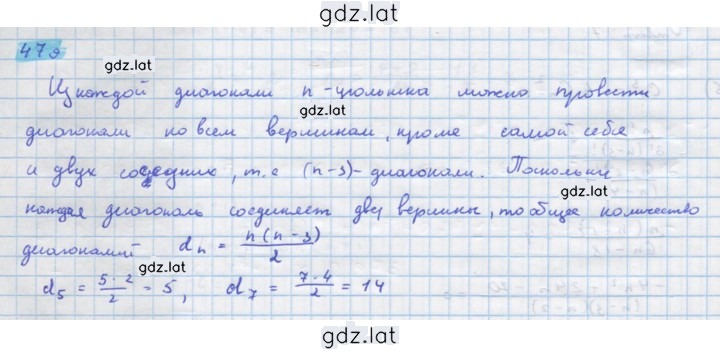 gdz.lat
479
gdz.lat
Из каждой диагонали n-угольника можно провести
gdz.lat
диагонали ко всем вершинам, кроме самой себя
и двух соседних, т.е (n-3)- диагонали. Поскольку
gdz.lat
каждая диагональ соединяет две вершины, то общее количество
диагоналей dₙ = n(n-3)/2
gdz.lat
d₅ = 5·2/2 = 5, d₇ = 7·4/2 = 14
gdz.lat